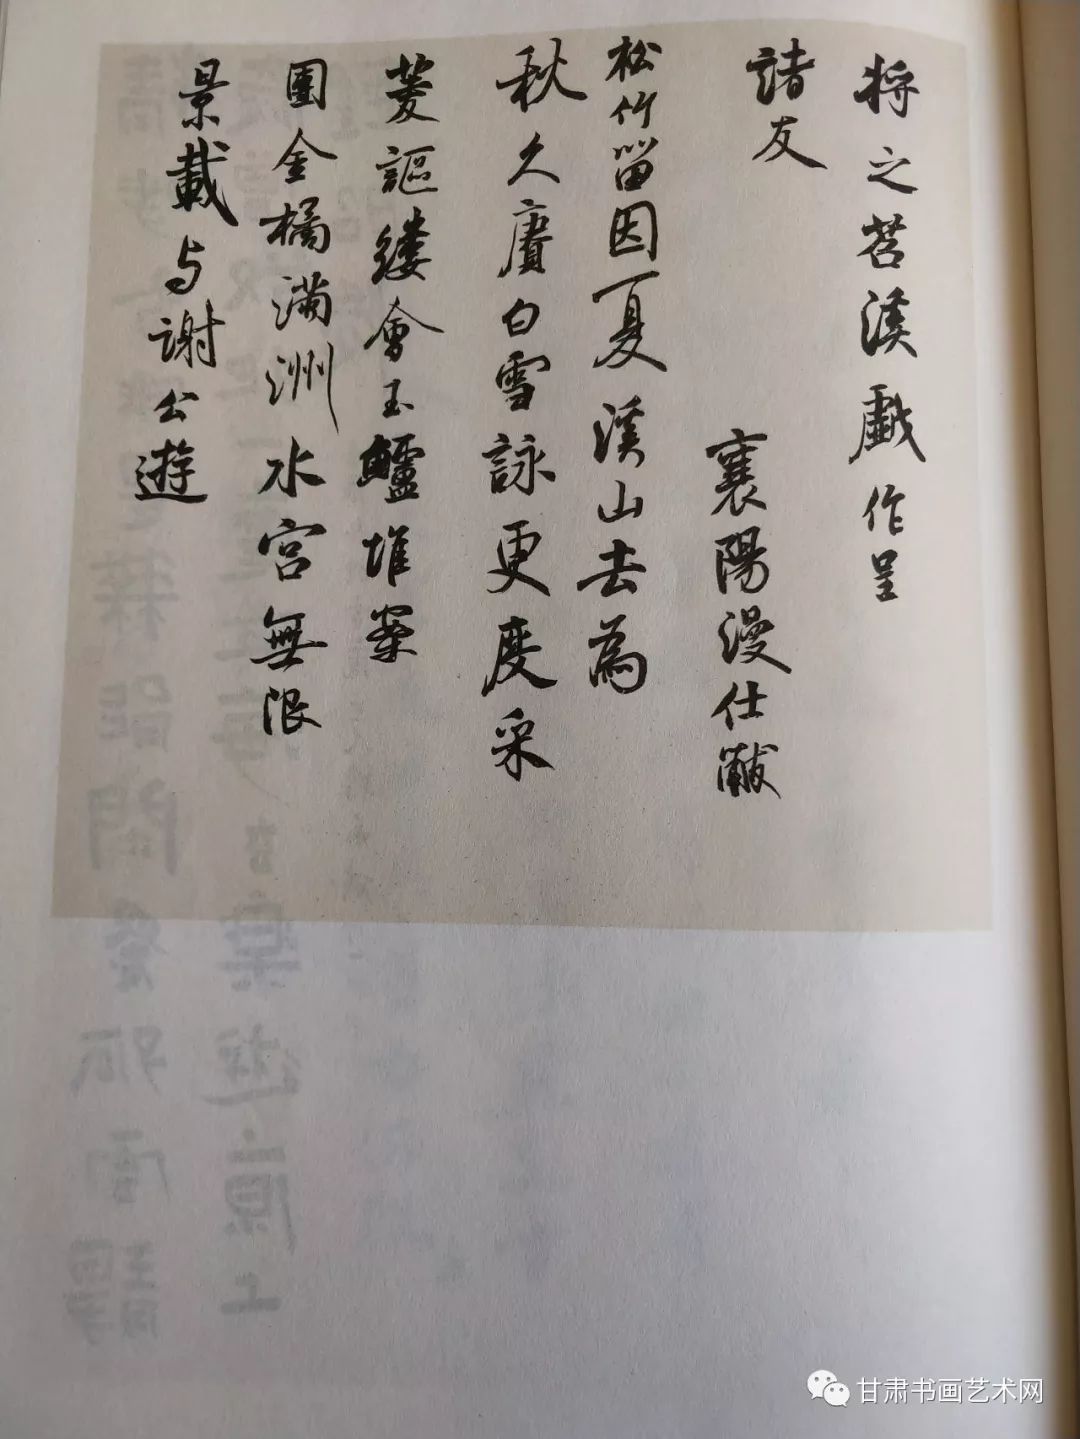 将之苕溪戯作呈
諸友
襄陽漫仕黻
松竹留因夏溪山去為
秋久賡白雪詠更度采
菱謳縷會玉鱸堆案
團金橘滿洲水宮無限
景載与謝公遊
甘肃书画艺术网